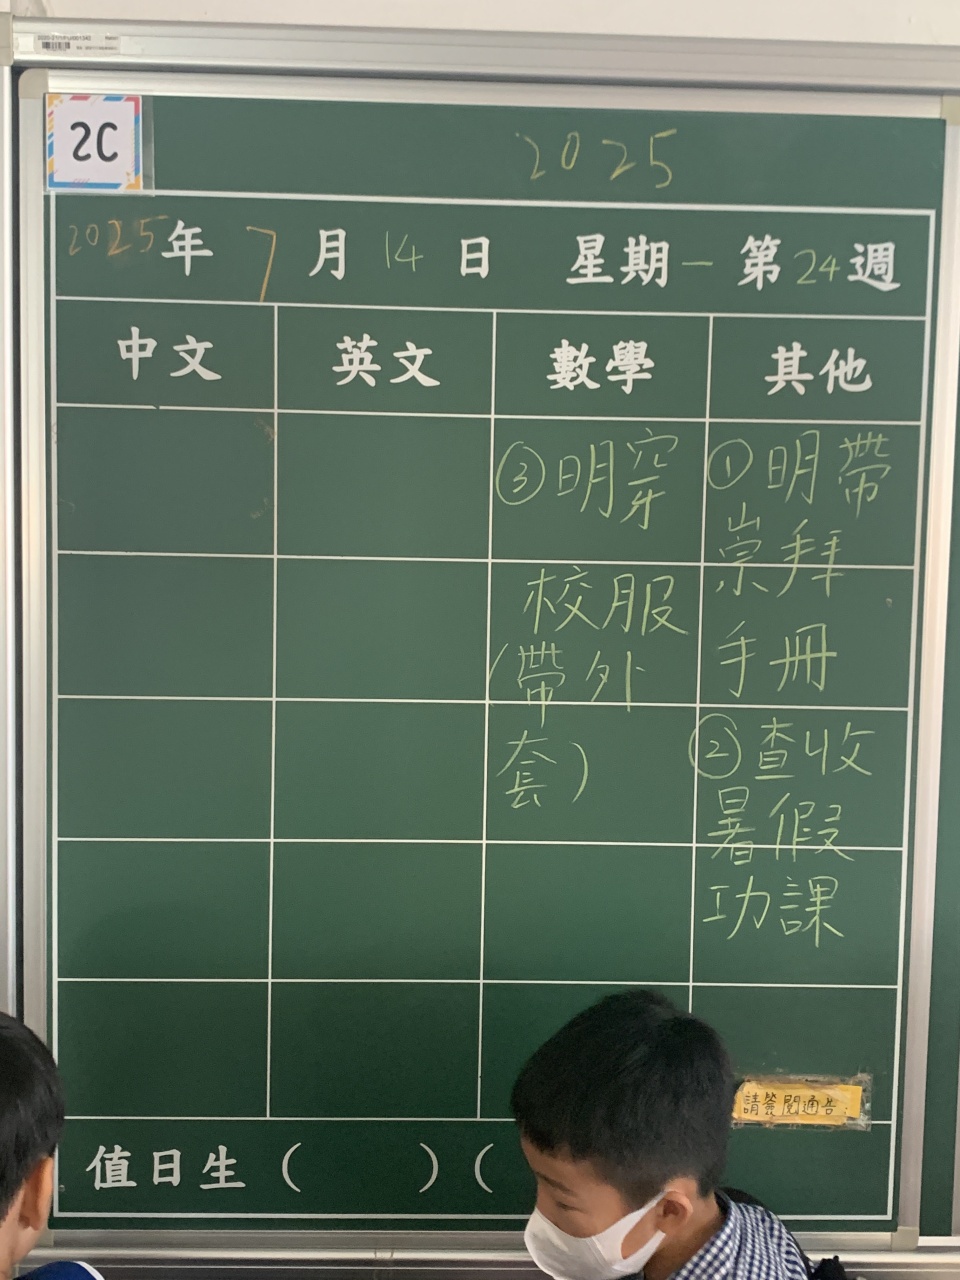 2C
2025
2025年 7月 14日 星期一 第24週
中文 英文 數學 其他
③明穿
校服
(帶外
套)
①明帶
崇拜
手冊
②查收
暑假
功課
請簽閱通告
值日生 ( ) (